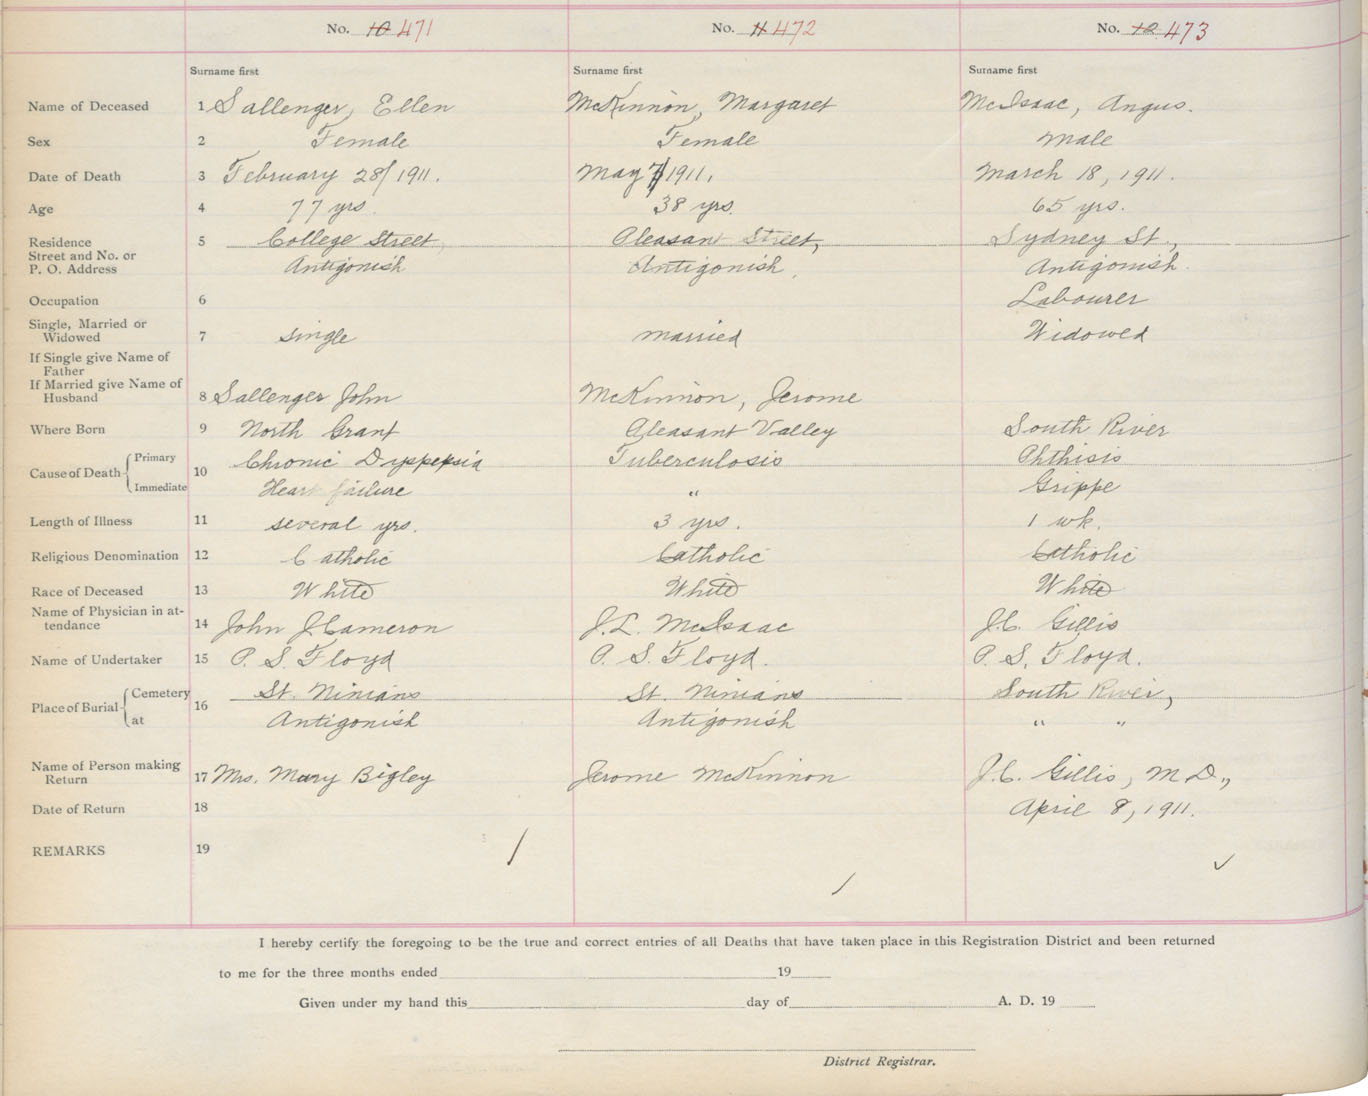 No. 10 471 No. 11 472 No. 12 473
Surname first Surname first Surname first
Name of Deceased 1 Sallenger, Ellen McKinnon, Margaret McIsaac, Angus.
Sex 2 Female Female Male
Date of Death 3 February 28/1911. May 7/1911. March 18, 1911.
Age 4 77 yrs. 38 yrs. 65 yrs.
Residence 5 College Street, Pleasant Street, Sydney St.,
Street and No. or
P. O. Address Antigonish Antigonish, Antigonish.
Occupation 6 Labourer
Single, Married or
Widowed 7 Single Married Widowed
If Single give Name of
Father
If Married give Name of
Husband 8 Sallenger John McKinnon, Jerome
Where Born 9 North Grant Pleasant Valley South River
Cause of Death Primary 10 Chronic Dyspepsia Tuberculosis Phthisis
Immediate Heart failure " Grippe
Length of Illness 11 several yrs. 3 yrs. 1 wk.
Religious Denomination 12 Catholic Catholic Catholic
Race of Deceased 13 White White White
Name of Physician in at-
tendance 14 John J. Cameron J. L. McIsaac J.C. Gillis
Name of Undertaker 15 P. S. Floyd P. S. Floyd. P. S. Floyd.
Place of Burial Cemetery 16 St. Ninians St. Ninians South River,
at Antigonish Antigonish " "
Name of Person making
Return 17 Mrs. Mary Bigley Jerome McKinnon J.C. Gillis, M.D.,
Date of Return 18 April 8, 1911.
REMARKS 19
I hereby certify the foregoing to be the true and correct entries of all Deaths that have taken place in this Registration District and been returned
to me for the three months ended 19
Given under my hand this day of A. D. 19
District Registrar.